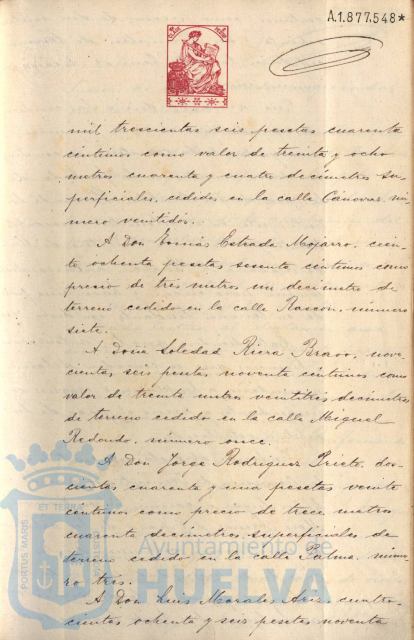 A.1.877.548*
mil trescientas seis pesetas cuarenta
céntimos como valor de treinta y ocho
metros cuarenta y cuatro decímetros su-
perficiales, cedidos en la calle Cánovas, nú-
mero veintidós.
A Don Tomás Estrada Mojarro, cien-
to ochenta pesetas sesenta céntimos como
precio de tres metros un decímetro de
terreno cedido en la calle Rascón, número
siete.
A Doña Soledad Riera Bravo, nove-
cientas seis pesetas noventa céntimos como
valor de treinta metros veintitrés decímetros
de terreno cedido en la calle Miguel
Redondo, número once.
A Don Jorge Rodríguez Prieto, dos-
cientas cuarenta y una pesetas veinte
céntimos como precio de trece metros
cuarenta decímetros superficiales de
terreno cedido en la calle Palma, núme-
ro tres.
A Don Luis Morales, cuatro-
cientas ochenta y seis pesetas noventa
PORTUS MARIS
ET TERRAE
Ayuntamiento de
HUELVA